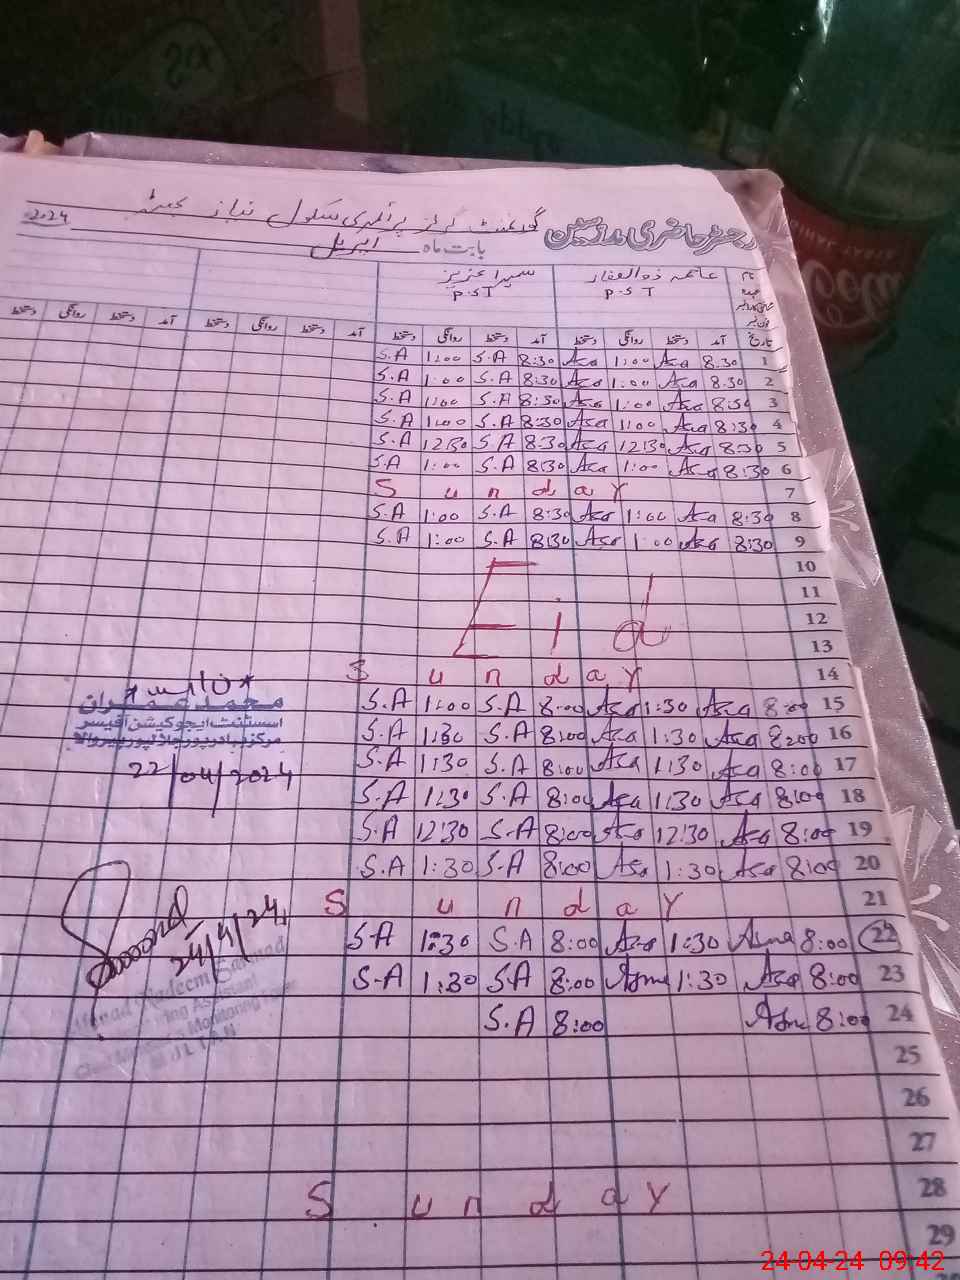 رجسٹر حاضری مدرسین گورنمنٹ گرلز پرائمری سکول نیاز
بابت ماہ اپریل 2024
نام عاصمہ ذوالفقار سمیرا عزیز
عہدہ P.S.T P.S.T
تاریخ آمد دستخط روانگی دستخط آمد دستخط روانگی دستخط آمد دستخط روانگی دستخط آمد دستخط روانگی دستخط
S.A 1:00 S.A 8:30 Asa 1:00 Asa 8:30 1
S.A 1:00 S.A 8:30 Asa 1:00 Asa 8:30 2
S.A 1:00 S.A 8:30 Asa 1:00 Asa 8:30 3
S.A 1:00 S.A 8:30 Asa 1:00 Asa 8:30 4
S.A 12:30 S.A 8:30 Asa 12:30 Asa 8:30 5
S.A 1:00 S.A 8:30 Asa 1:00 Asa 8:30 6
Sunday 7
S.A 1:00 S.A 8:30 Asa 1:00 Asa 8:30 8
S.A 1:00 S.A 8:30 Asa 1:00 Asa 8:30 9
10
11
Eid 12
13
Sunday 14
S.A 1:00 S.A 8:00 Asa 1:30 Asa 8:00 15
S.A 1:30 S.A 8:00 Asa 1:30 Asa 8:00 16
S.A 1:30 S.A 8:00 Asa 1:30 Asa 8:00 17
S.A 1:30 S.A 8:00 Asa 1:30 Asa 8:00 18
S.A 12:30 S.A 8:00 Asa 12:30 Asa 8:00 19
S.A 1:30 S.A 8:00 Asa 1:30 Asa 8:00 20
Sunday 21
S.A 1:30 S.A 8:00 Asa 1:30 Asma 8:00 22
S.A 1:30 S.A 8:00 Asma 1:30 Asa 8:00 23
S.A 8:00 Asma 8:00 24
25
26
27
Sunday 28
29
محمد عمران
اسسٹنٹ ایجوکیشن آفیسر
مرکز بہادرپور جلالپور پیروالا
22/04/2024
24/4/24
Nadeem
Monitoring
Cola
24-04-24 09:42